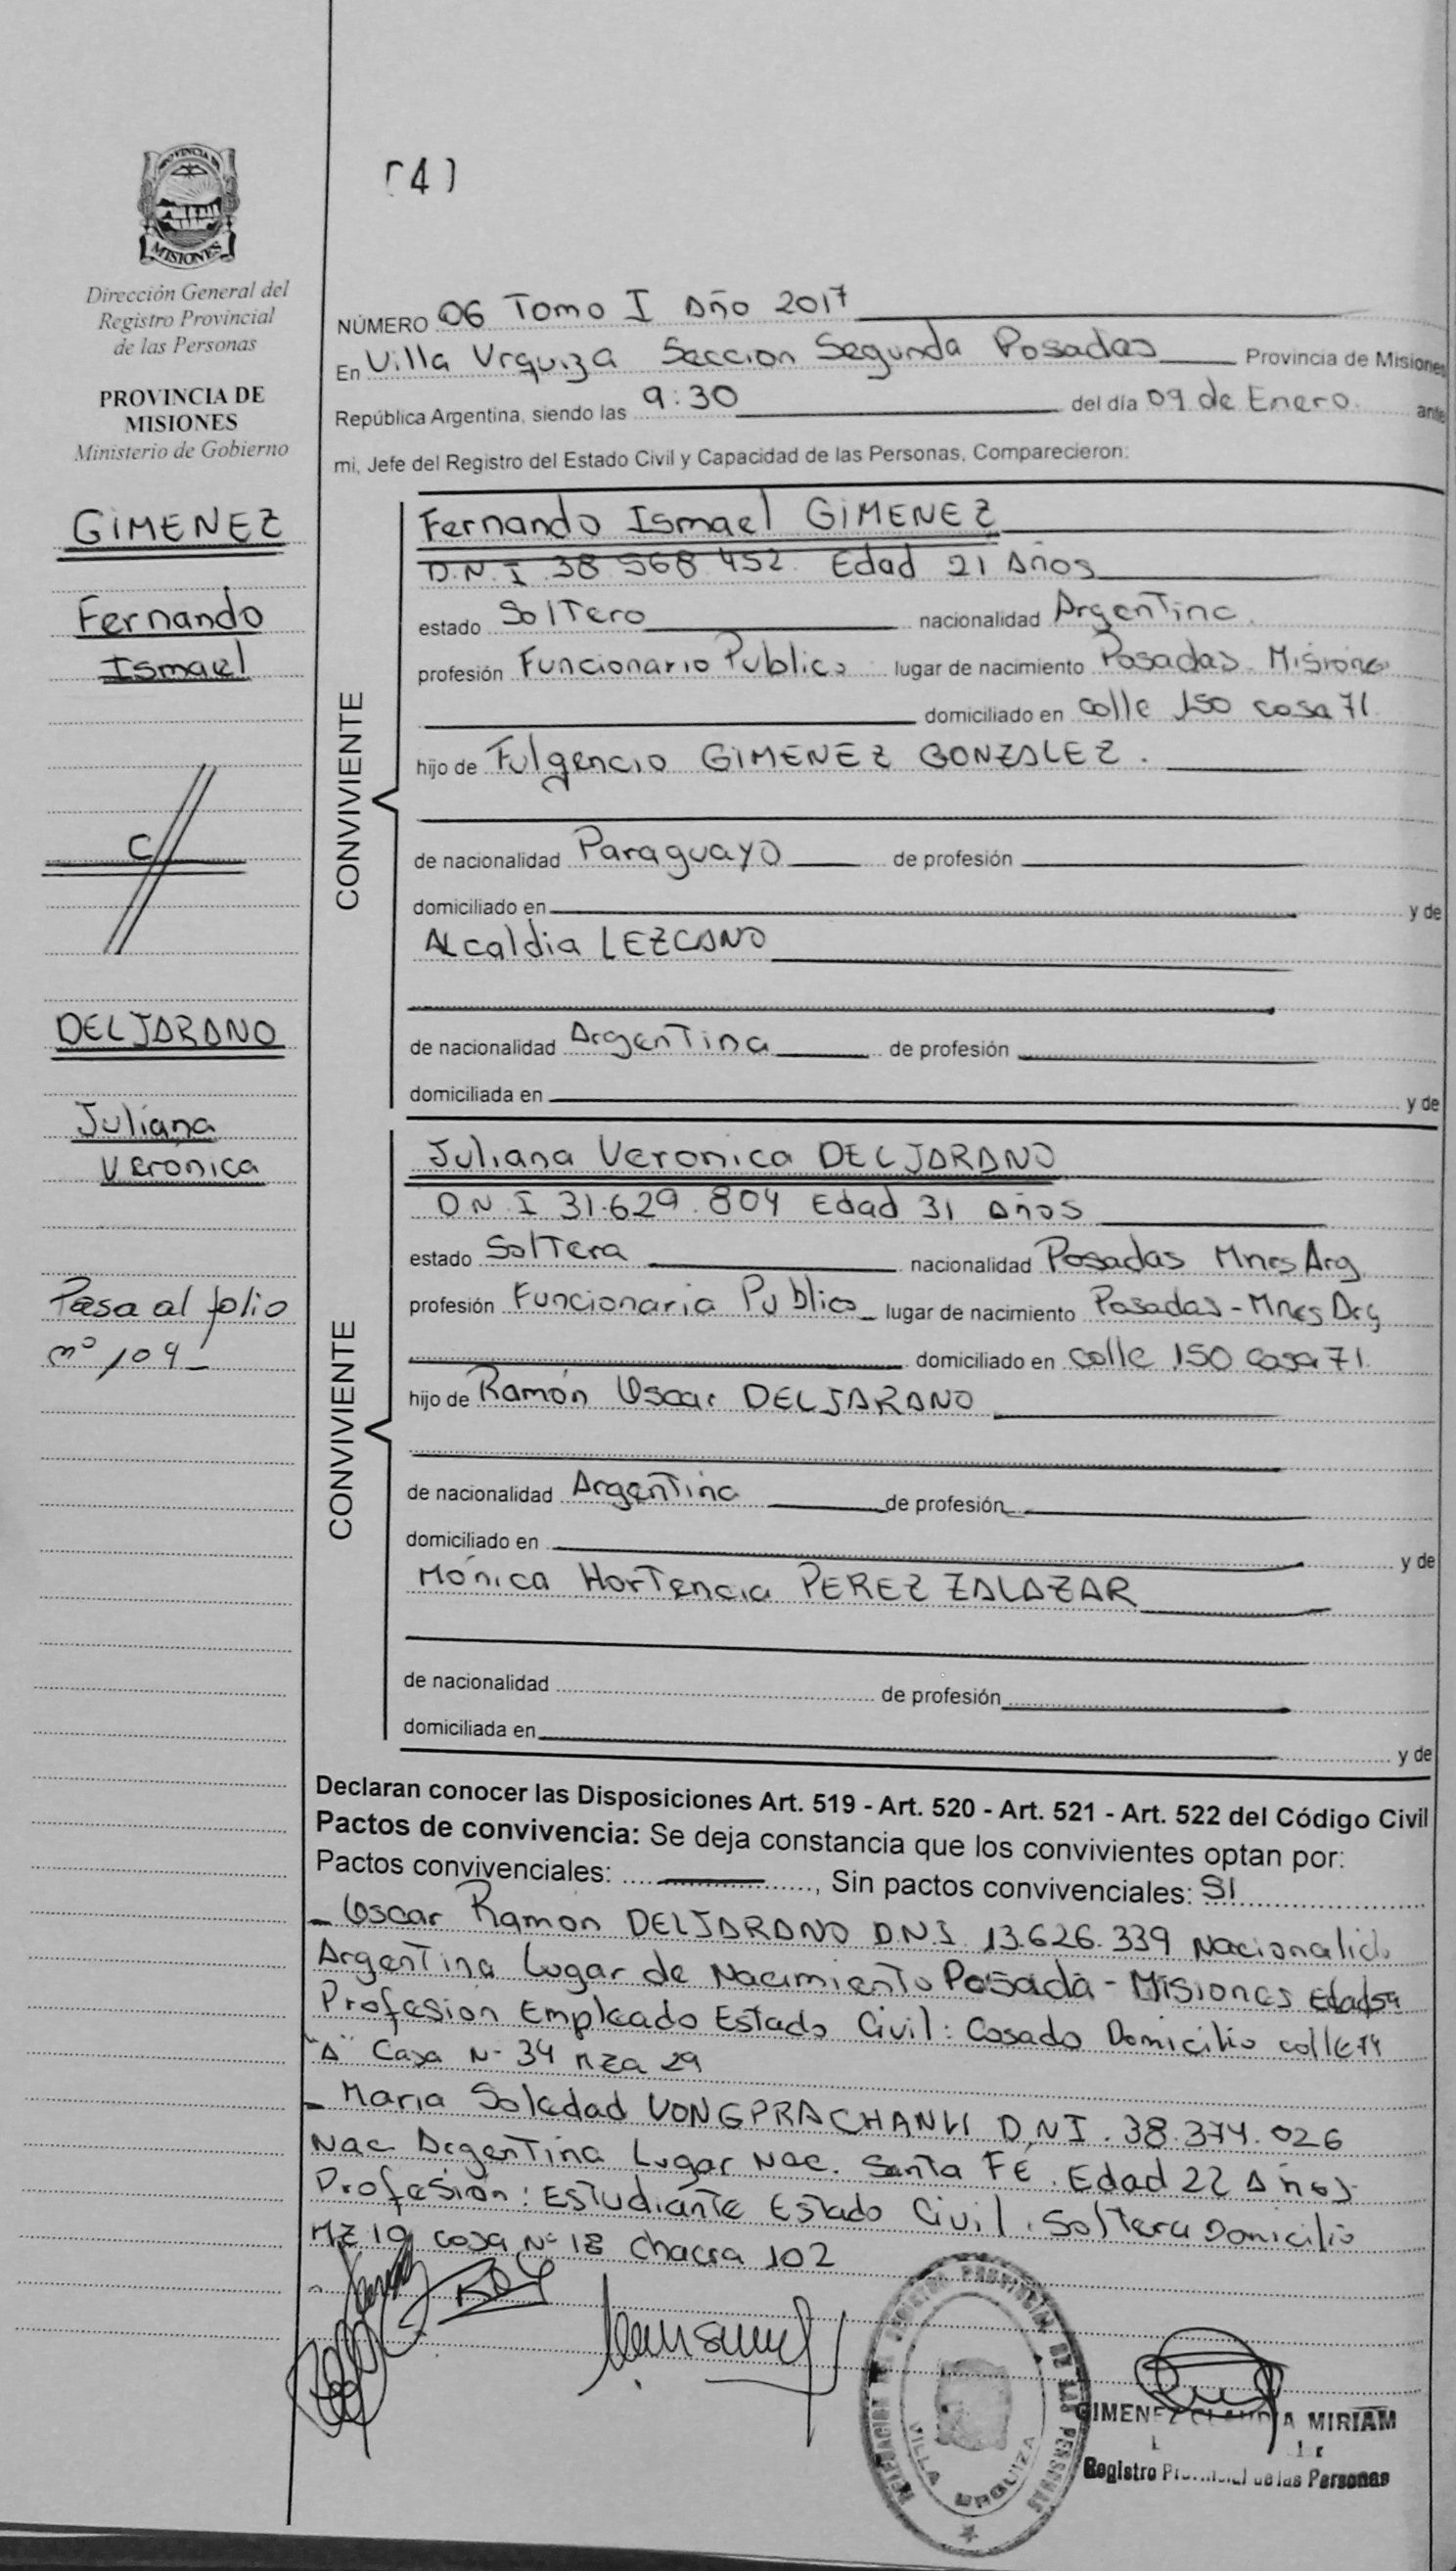 PROVINCIA DE
MISIONES
Dirección General del
Registro Provincial
de las Personas
PROVINCIA DE
MISIONES
Ministerio de Gobierno
GIMENEZ
Fernando
Ismael
C
DELJARANO
Juliana
Verónica
Pasa al folio
nº 109
(4)
NÚMERO 06 Tomo I Año 2017
En Villa Urquiza Seccion Segunda Posadas Provincia de Misiones
República Argentina, siendo las 9:30 del día 09 de Enero. ante
mi, Jefe del Registro del Estado Civil y Capacidad de las Personas, Comparecieron:
CONVIVIENTE
Fernando Ismael GIMENEZ
D.N.I 38.568.452. Edad 21 Años
estado Soltero nacionalidad Argentina.
profesión Funcionario Publico lugar de nacimiento Posadas - Misiones
domiciliado en calle 150 casa 71
hijo de Fulgencio GIMENEZ GONZALEZ.
de nacionalidad Paraguayo de profesión
domiciliado en y de
Alcaldia LEZCANO
de nacionalidad Argentina de profesión
domiciliada en y de
CONVIVIENTE
Juliana Veronica DELJARANO
D.N.I 31.629.804 Edad 31 Años
estado Soltera nacionalidad Posadas Mnes Arg
profesión Funcionaria Publica lugar de nacimiento Posadas - Mnes Arg
domiciliado en calle 150 casa 71.
hijo de Ramón Oscar DELJARANO
de nacionalidad Argentina de profesión
domiciliado en y de
Mónica Hortencia PEREZ ZALAZAR
de nacionalidad de profesión
domiciliada en y de
Declaran conocer las Disposiciones Art. 519 - Art. 520 - Art. 521 - Art. 522 del Código Civil
Pactos de convivencia: Se deja constancia que los convivientes optan por:
Pactos convivenciales: , Sin pactos convivenciales: SI
- Oscar Ramon DELJARANO D.N.I. 13.626.339 Nacionalida
Argentina Lugar de Nacimiento Posada - Misiones Edad
Profesion Empleado Estado Civil: Casado Domicilio calle 74
"A" Casa N- 34 Mza 29
- Maria Soledad VONGPRACHANH D.N.I. 38.374.026
Nac. Argentina Lugar Nac. Santa Fé. Edad 22 Años
Profesión: Estudiante Estado Civil. Soltera Domicilio
MZ 19 casa Nº 18 chacra 102
DELEGACION REGISTRO PROVINCIAL DE LAS PERSONAS
VILLA URQUIZA
GIMENEZ CLAUDIA MIRIAM
Registro Provincial de las Personas